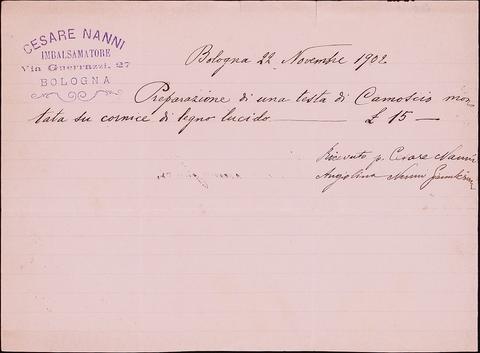 CESARE NANNI
IMBALSAMATORE
Via Guerrazzi, 27
BOLOGNA
Bologna 22 Novembre 1902
Preparazione di una testa di Camoscio mon
tata su cornice di legno lucido — £ 15 —
Ricevuto p. Cesare Nanni
Angiolina Nanni